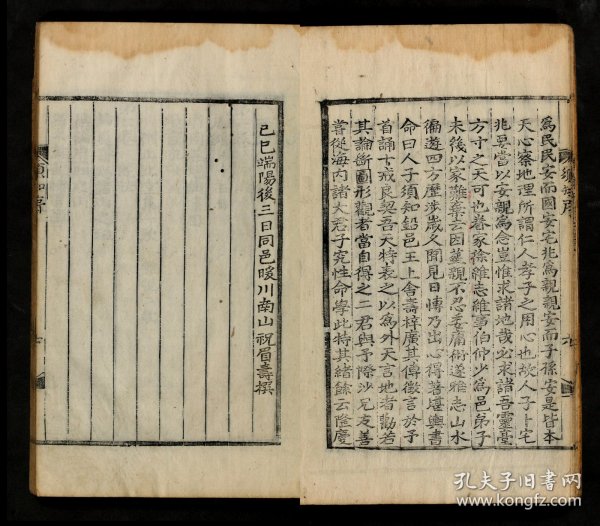 為民民安而國安宅兆為親親安而子孫安是皆本
天心察地理所謂仁人孝子之用心也故人子卜宅
兆要當以安親為念豈惟求諸地哉必求諸吾靈臺
方寸之天可也眷家徐維志維事伯仲少為邑弟子
未後以家難棄去因葬親不忍委庸術遂雅志山水
徧遊四方歷涉歲久聞見日博乃出心得著堪輿書
命曰人子須知鉛邑王上舍壽梓廣其傳徵言於予
首誦十戒良契吾天特表之以為外天言地者勸若
其論衡圖形觀者當自得之二君與予際沙兄友善
嘗從海內諸大君子究性命學此特其緒餘云隆慶
己巳端陽後三日同邑暖川南山祝眉壽撰
孔夫子旧书网
www.kongfz.com